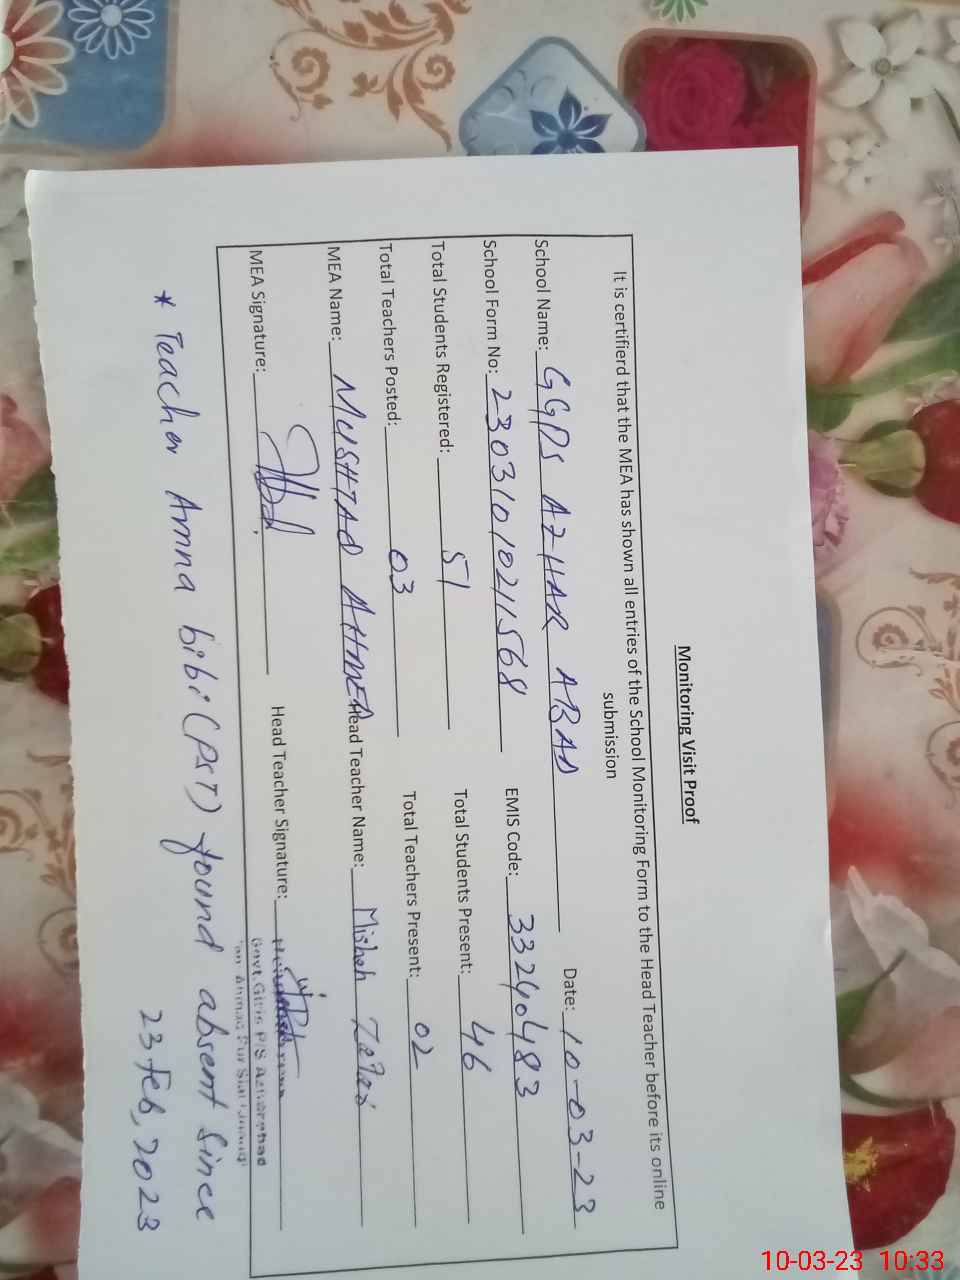 Monitoring Visit Proof
It is certifierd that the MEA has shown all entries of the School Monitoring Form to the Head Teacher before its online
submission
School Name: GGPS AZHAR ABAD Date: 10-03-23
School Form No: 23031010211568 EMIS Code: 33240483
Total Students Registered: 51 Total Students Present: 46
Total Teachers Posted: 03 Total Teachers Present: 02
MEA Name: MUSHTAQ AHMED Head Teacher Name: Misbah
MEA Signature: Head Teacher Signature:
Govt. Girls P/S
* Teacher Amna bibi (PST) found absent since
23 Feb, 2023
10-03-23 10:33